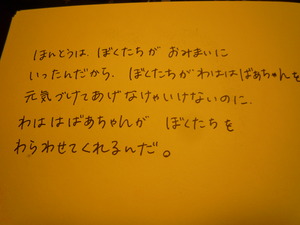 ほんとうは、ぼくたちが おみまいに
いったんだから、ぼくたちがわははばあちゃんを
元気づけてあげなけゃいけないのに、
わははばあちゃんが ぼくたちを
わらわせてくれるんだ。